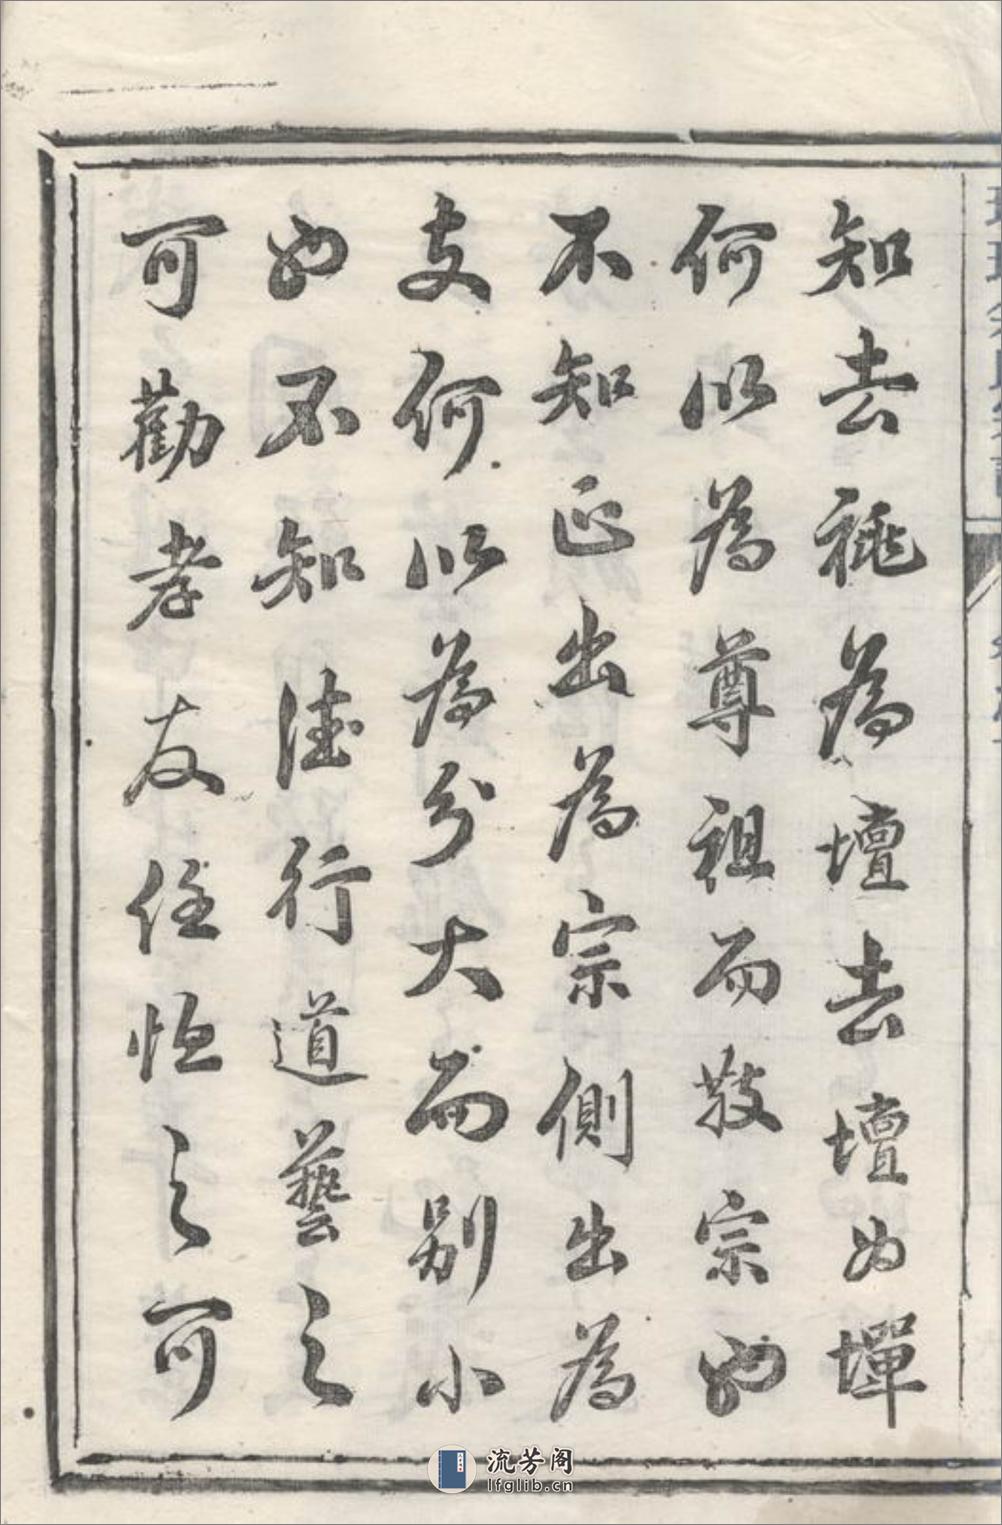 知去祧為壇去壇為墠
何以為尊祖而敬宗也
不知正出為宗側出為
支何以為分大而别小
也不知德行道藝之
可勸孝友任恤之可
流芳阁
lfglib.cn